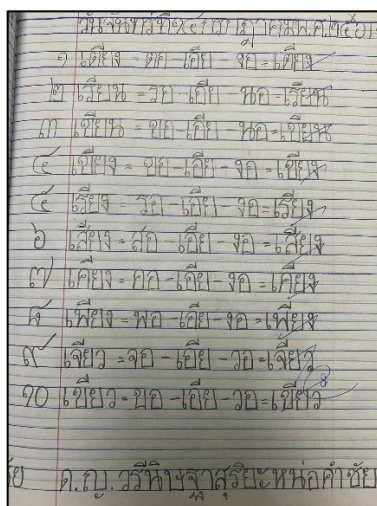 วันจันทร์ที่ ๑๕ กรกฎาคม พ.ศ.
๑ เตียง = ตอ - เอีย - งอ = เตียง
๒ เรียน = รอ - เอีย - นอ = เรียน
๓ เขียน = ขอ - เอีย - นอ = เขียน
๔ เขียง = ขอ - เอีย - งอ = เขียง
๕ เรียง = รอ - เอีย - งอ = เรียง
๖ เสียง = สอ - เอีย - งอ = เสียง
๗ เคียง = คอ - เอีย - งอ = เคียง
๘ เพียง = พอ - เอีย - งอ = เพียง
๙ เจียว = จอ - เอีย - วอ = เจียว
๑๐ เขียว = ขอ - เอีย - วอ = เขียว
ด.ญ. สุริยะหน่อคำชัย